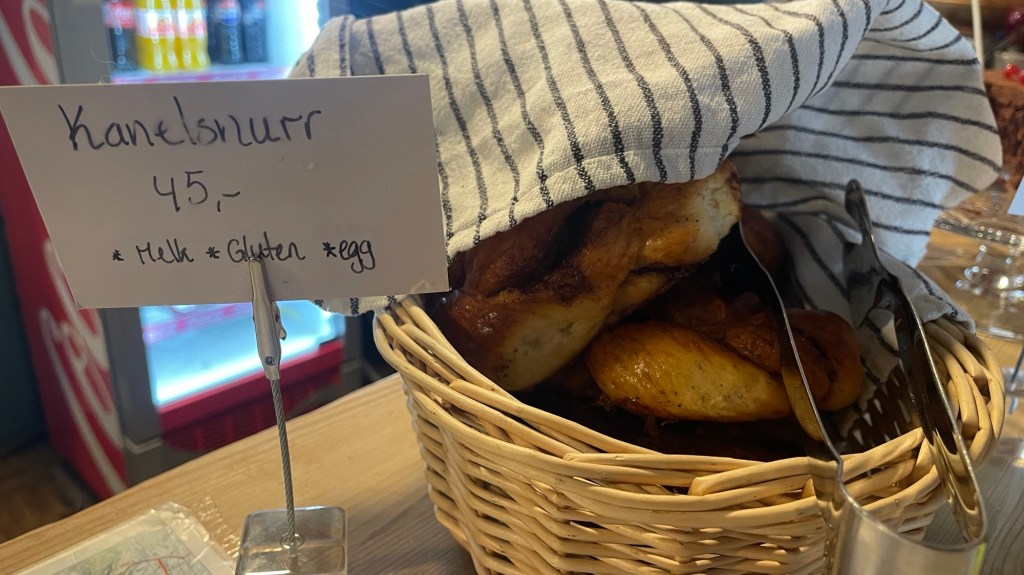 Kanelsnurr
45,-
* Melk * Gluten *egg